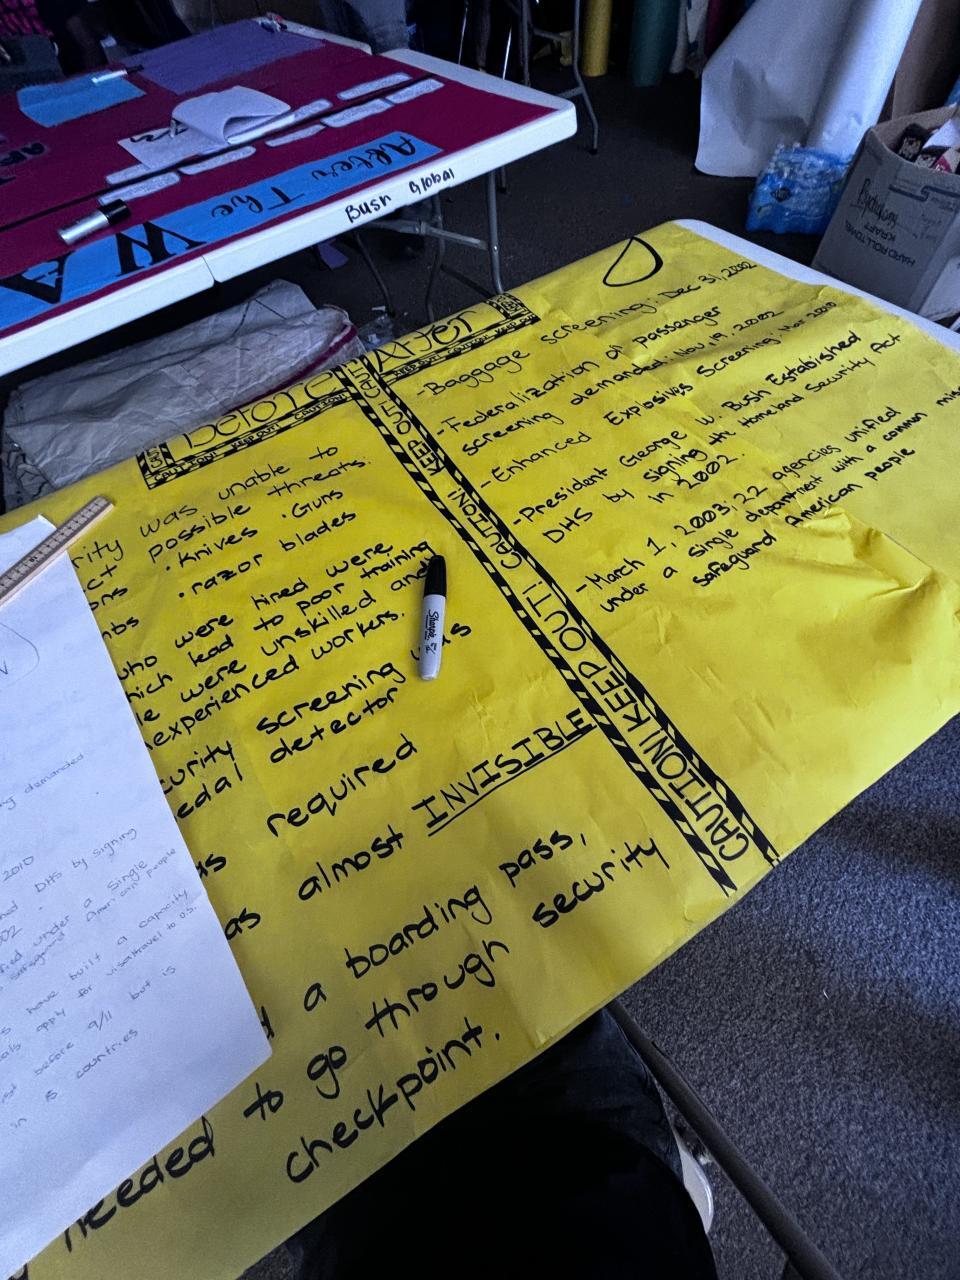 After The
WA
Bush Global
Before
CAUTION! KEEP OUT! CAUTION!
rity was unable to
ct possible threats.
ons · Knives · Guns
mbs · razor blades
who were hired were
hich lead to poor training
le were unskilled and
inexperienced workers.
curity screening was
edal detector
as required
as almost INVISIBLE
d a boarding pass,
needed to go through security
checkpoint.
After
KEEP OUT! CAUTION! KEEP OUT!
- Baggage screening: Dec 31, 2002
- Federalization of passenger
screening demanded: Nov, 19, 2002
- Enhanced Explosives Screening: Mar 2010
- President George W. Bush Established
DHS by signing the Homeland Security Act
in 2002.
- March 1, 2003; 22 agencies unified
under a single department with a common miss
safeguard American people
KEEP OUT! CAUTION! KEEP OUT! CAUTION! KEEP OUT! CAUTION!
Sharpie
demanded
2010
DHS by signing
02
under a single
safeguard American people
have built a capacity
apply for visa/travel to U.S.
before 9/11 but is
in 15 countries
HARD ROLL TOWEL
KRAFT